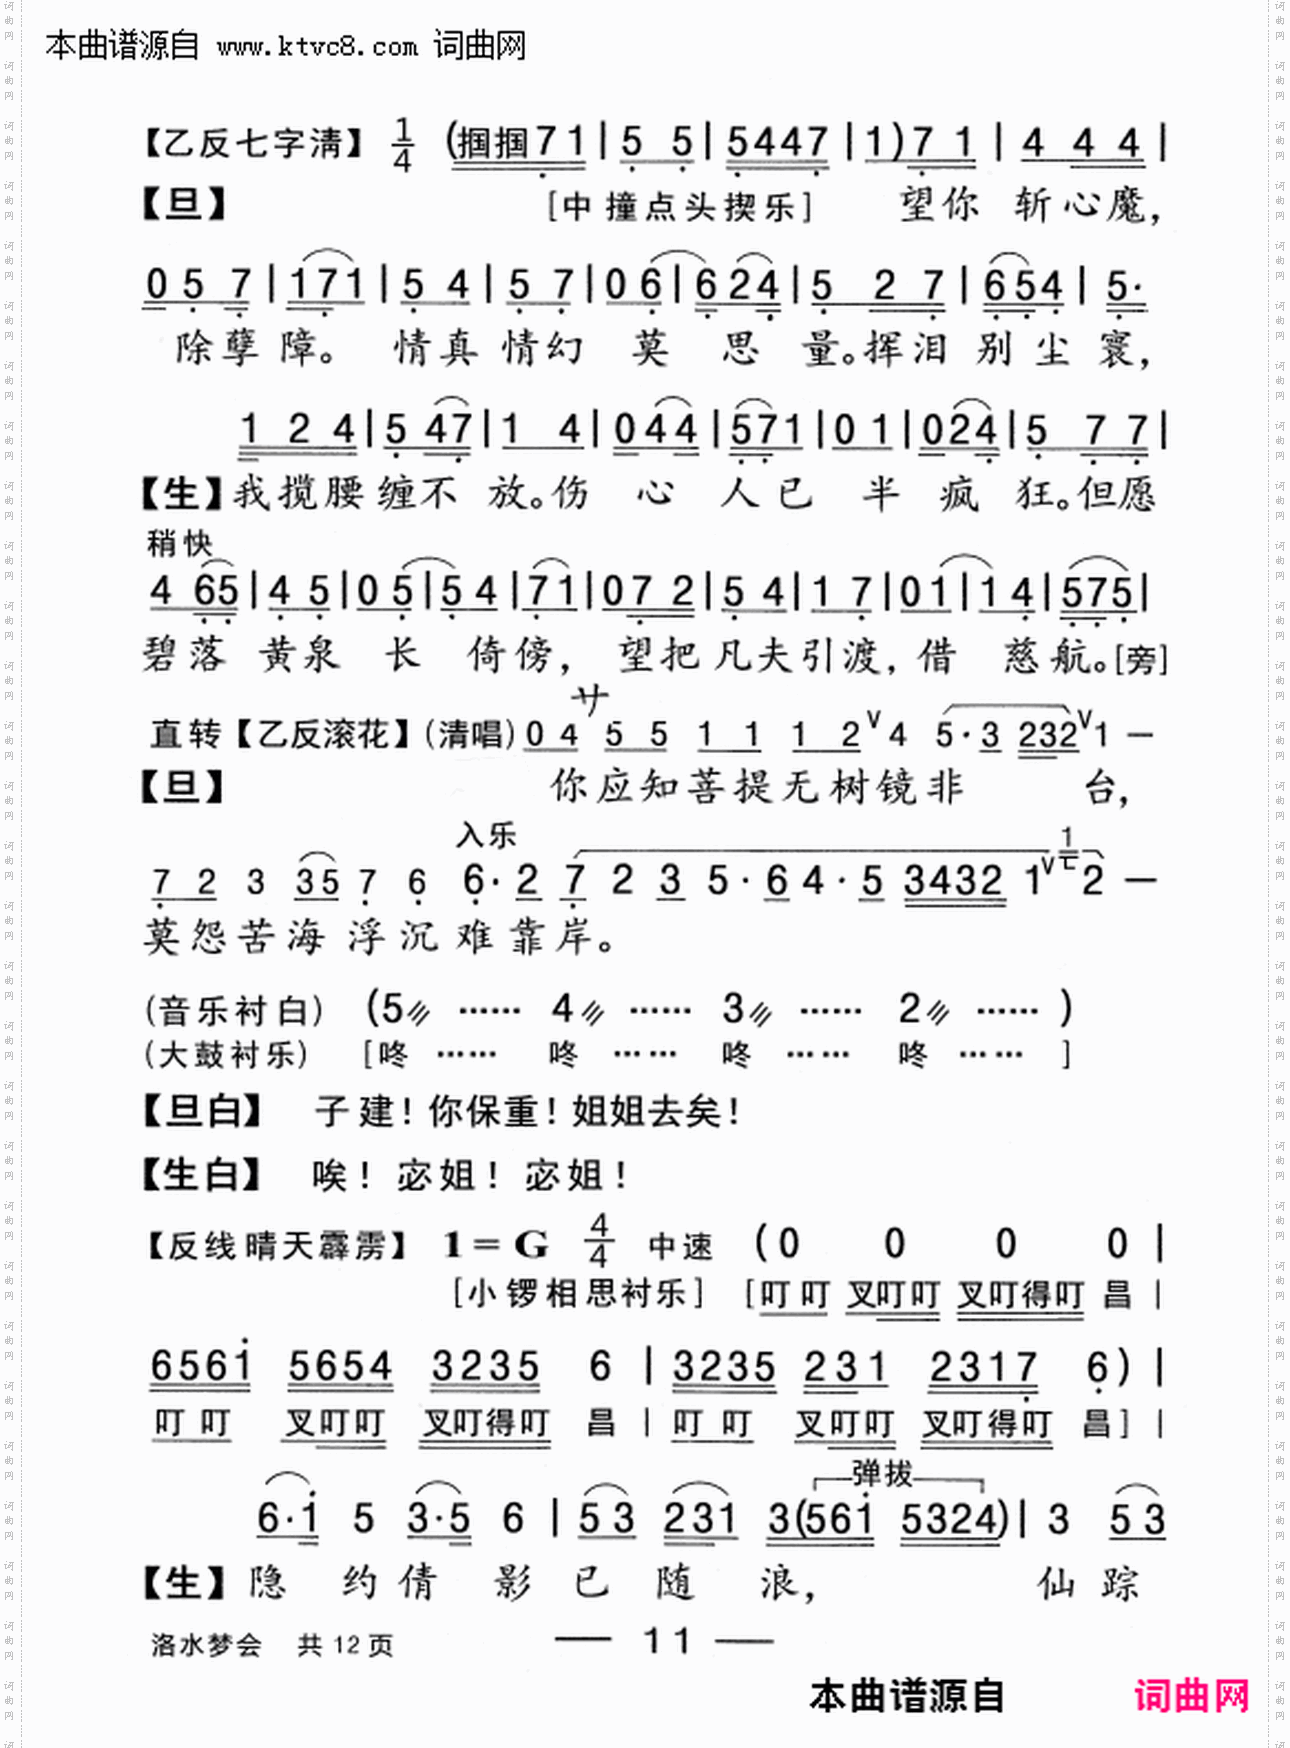 本曲谱源自 www.ktvc8.com 词曲网
【乙反七字清】 1/4 (掴掴 7 1 | 5 5 | 5 4 4 7 | 1 ) 7 1 | 4 4 4 |
【旦】 [中撞点头揳乐] 望你 斩心魔，
0 5 7 | 1 7 1 | 5 4 | 5 7 | 0 6 | 6 2 4 | 5 2 7 | 6 5 4 | 5 ·
除孽障。 情真情幻 莫 思 量。挥泪 别尘寰，
1 2 4 | 5 4 7 | 1 4 | 0 4 4 | 5 7 1 | 0 1 | 0 2 4 | 5 7 7 |
【生】我揽腰缠不 放。伤 心 人已 半 疯 狂。但愿
稍快
4 6 5 | 4 5 | 0 5 | 5 4 | 7 1 | 0 7 2 | 5 4 | 1 7 | 0 1 | 1 4 | 5 7 5 |
碧落 黄泉 长 倚傍， 望把凡夫引渡，借 慈航。[旁]
サ
直转【乙反滚花】(清唱) 0 4 5 5 1 1 1 2 V 4 5 · 3 2 3 2 V 1 —
【旦】 你应知菩提无树镜非 台，
入乐
7 2 3 3 5 7 6 6 · 2 7 2 3 5 · 6 4 · 5 3 4 3 2 1 V 1 2 —
莫怨苦海浮沉难靠岸。
(音乐衬白) (5 …… 4 …… 3 …… 2 …… )
(大鼓衬乐) [咚 …… 咚 …… 咚 …… 咚 …… ]
【旦白】 子建！你保重！姐姐去矣！
【生白】 唉！宓姐！宓姐！
【反线晴天霹雳】 1 = G 4/4 中速 (0 0 0 0 |
[小锣相思衬乐] [叮叮 叉叮叮 叉叮得叮 昌 |
6 5 6 1 5 6 5 4 3 2 3 5 6 | 3 2 3 5 2 3 1 2 3 1 7 6 ) |
叮叮 叉叮叮 叉叮得叮 昌 | 叮叮 叉叮叮 叉叮得叮 昌 ] |
弹拨
6 · 1 5 3 · 5 6 | 5 3 2 3 1 3 (5 6 1 5 3 2 4) | 3 5 3
【生】隐 约倩 影 已 随 浪， 仙踪
洛水梦会 共 12 页 — 11 —
本曲谱源自 词曲网